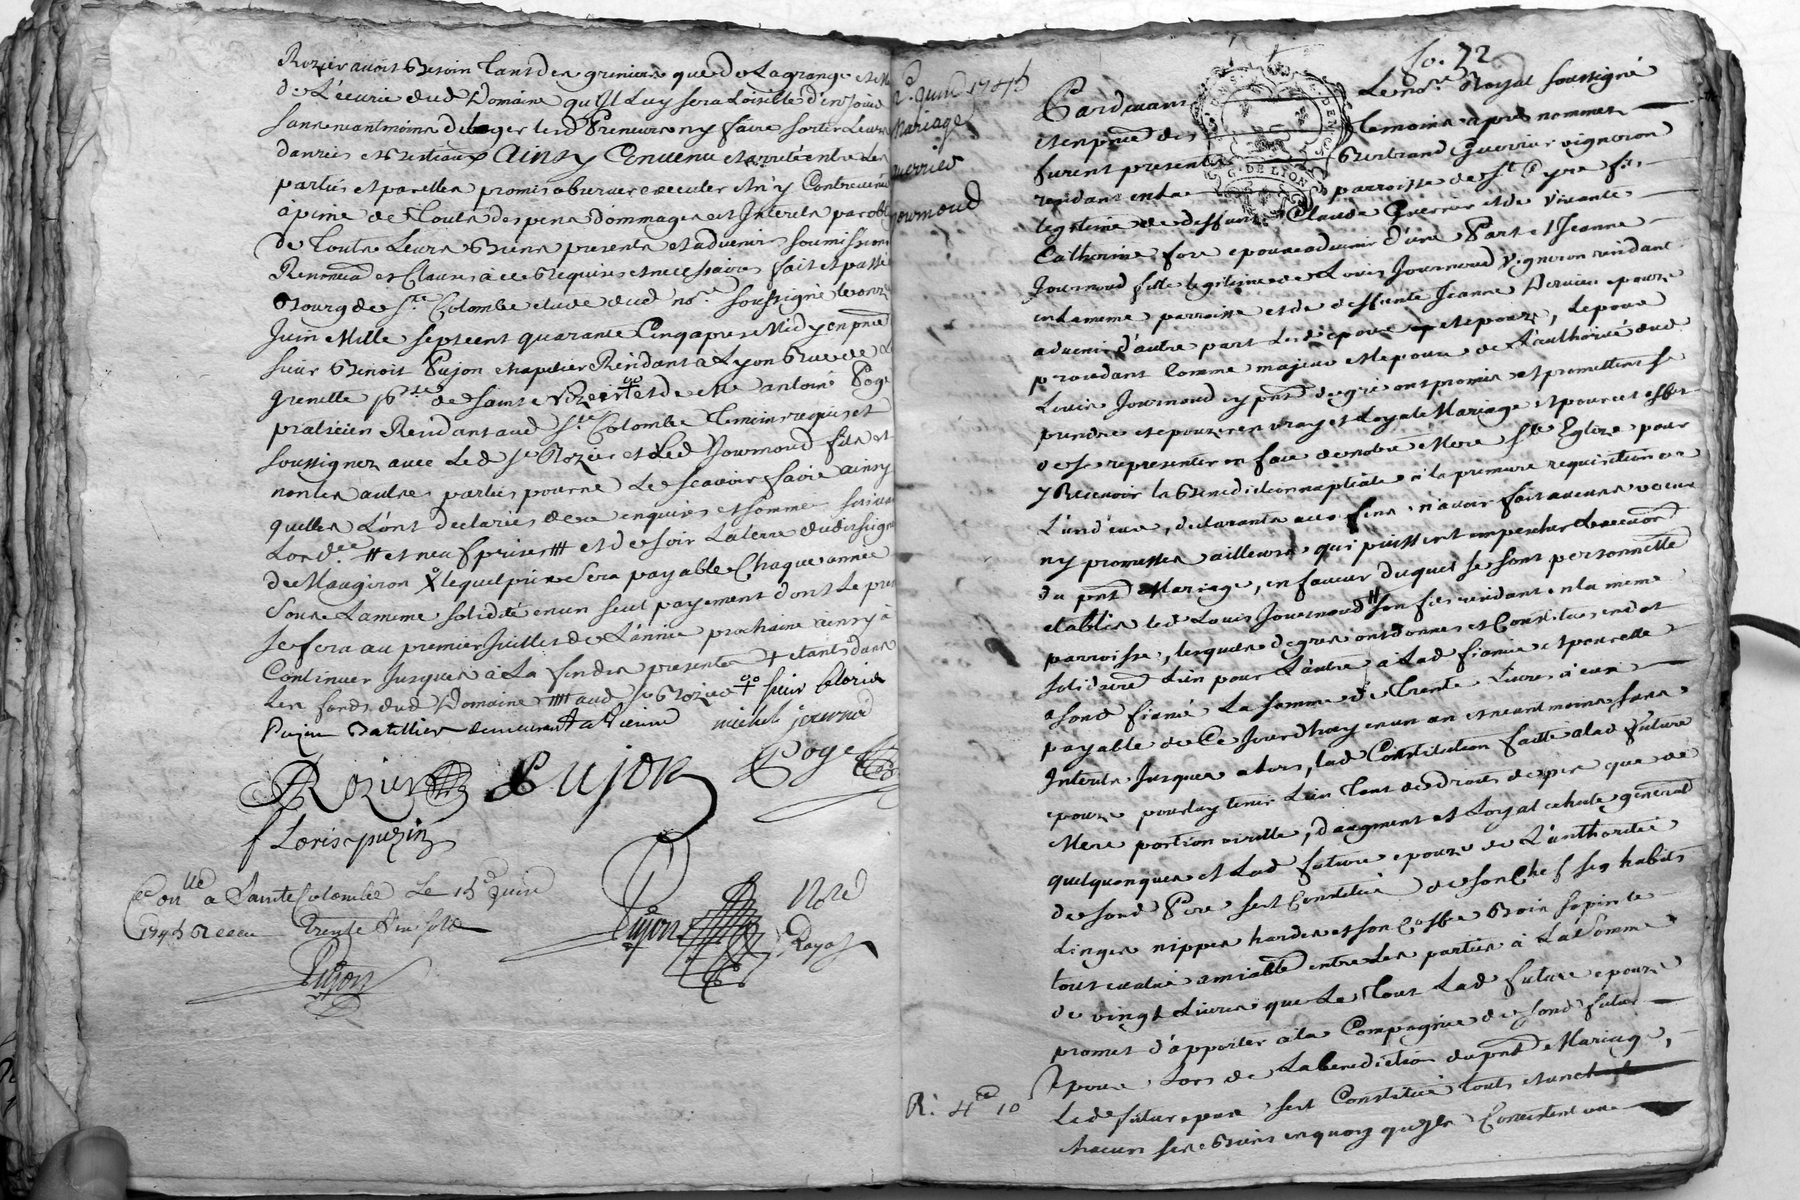 Rozier avoit Besoin tant des greniers que de La grange et
de L'ecurie dud Domaine qu'Il Luy sera Loisible d'en Joüir
sans neantmoins deloger lesd Preneurs ny faire sortir Leurs
danrées et Bestiaux Ainsy Convenu et arreté entre Les
parties et par elles promis observer executer et n'y Contrevenir
à peine de Touts despens dommages et Interets par obl
de Touts Leurs Biens presents et advenir soumissions
Renonciaõns et Clauses à ce Requises et necessaires fait et passé
Bourg de Ste Colombe etude dud nore soussigné le onze
Juin Mille sept cent quarante Cinq apres Midy en pnce
sieur Benoit Pujon chapelier Résidant à Lyon Rue de L
grenette psse de saint Nizier et de Me antoine Poge
praticien Residant aud Ste Colombe Temoins requis et
soussignez avec Led sr Rozier et Led Journoud fils et
non les autres parties pour ne Le scavoir faire ainsy
quelles L'ont declaré de ce enquises et sommées suivant
Lordce # et neuf prises #### et de soir La terre
de Maugiron X lequel prix sera payable Chaque année
sous La meme solidité en un seul payement dont Le pre
se fera au premier Juillet de L'année prochaine ainsy à
Continuer Jusques à La fin des presentes + etants dans
Les fonds dud Domaine #### aud sr Rozier + sieur floris
Puzin Batellier demeurant a Vienne michel journod
Rozier Pujon Poge
floris puzin
Conlle a Sainte Colombe Le 15e Juin
1745 Receu Trente Six sols
Pujon
Pujon Nore
Royal
2e Juin 1745
Mariage
Guerrier
Journoud
fo. 72
Pardevant Le nore Royal soussigné
et en pñce des temoins apres nommez
furent presents Bertrand Guerrier vigneron
residant en La parroisse de St Cyre fils
legitime de deffunt Claude Guerrier et de vivante
Catherine fore epoux advenir d'une Part et Jeanne
Journoud fille legitime de Louis Journoud vigneron residant
en La meme parroisse et de deffunte Jeanne Servier epouze
advenir d'autre part Lesd epoux et epouze, Lepoux
procedant Comme majeur et Lepouze de L'authorité dud
Louis Journoud cy pnt de gré ont promis et promettent se
prendre et epouzer en vray et Loyal Mariage et pour cet effet
de se representer en face de notre Mere Ste Eglize pour
y Recevoir la Benediction nuptiale à la premiere requisition de
L'un d'eux, declarants aux fins n'avoir fait aucuns voeux
ny promesses ailleurs qui puissent empescher Lexecuõn
du pnt Mariage, en faveur duquel se sont personnellemt
etablis led Louis Journoud # son fils residant en la meme
parroisse, lesquels de gré ont donnés et Constitués en dot
solidairemt L'un pour L'autre à Lad fiancée et pour elle
a sond fiancé La somme de Trente Livres à eux
payable de Ce Jourdhuy en un an et neantmoins sans
Interets Jusques alors, lad Constitution faitte a lad future
epouze pour luy tenir Lieu Tant de droits de pere que de
Mere portion virille, d'augment et Loyal echute generalemt
quelquonques et Lad future epouze de L'authorité
de sond Pere sest Constitué de son Chef ses habits
Linges nippes hardes et son Coffre Bois sapin le
tout evalué amiablemt entre Les parties à La somme
de vingt Livres que Le Tout Lad future epouze
promet d'apporter à la Compagnie de sond futur
epoux Lors de La benediction du pnt Mariage,
Led futur epoux sest Constitué touts et uns
chacuns ses Biens en quoy qu'Ils Consistent
R: 4ce 10